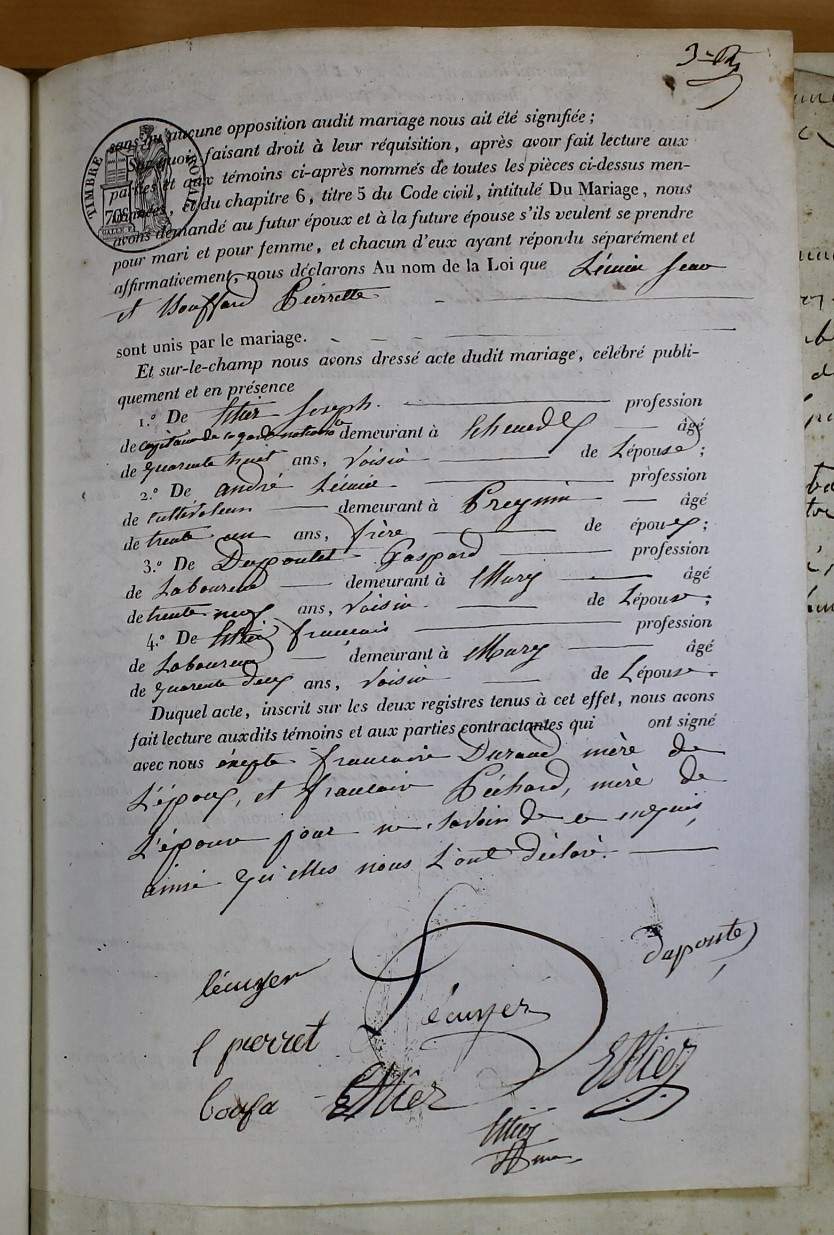 sans qu'aucune opposition audit mariage nous ait été signifiée ;
Sur quoi, faisant droit à leur réquisition, après avoir fait lecture aux
parties et aux témoins ci-après nommés de toutes les pièces ci-dessus men-
tionnées, et du chapitre 6, titre 5 du Code civil, intitulé Du Mariage, nous
avons demandé au futur époux et à la future épouse s'ils veulent se prendre
pour mari et pour femme, et chacun d'eux ayant répondu séparément et
affirmativement, nous déclarons Au nom de la Loi que Jean
et Bouffard Pierrette
sont unis par le mariage.
Et sur-le-champ nous avons dressé acte dudit mariage, célébré publi-
quement et en présence
1.º De Joseph profession
de capitaine de la garde nationale demeurant à âgé
de quarente huit ans, voisin de L'épouse ;
2.º De andré profession
de cultivateur demeurant à âgé
de trente un ans, frère de époux ;
3.º De Gaspard profession
de Laboureur demeurant à âgé
de trente neuf ans, voisin de L'épouse ;
4.º De francois profession
de Laboureur demeurant à âgé
de quarente deux ans, voisin de L'épouse.
Duquel acte, inscrit sur les deux registres tenus à cet effet, nous avons
fait lecture auxdits témoins et aux parties contractantes qui ont signé
avec nous éxepté francoise Durand mère de
L'époux, et francoise Péchard, mère de
L'épouse pour ne savoir de ce enquis,
ainsi qu'elles nous L'ont déclaré.
daponte
lécuyer
Lécuyer
pierret
Esttiez
boufa
Esttier
TIMBRE ROYAL